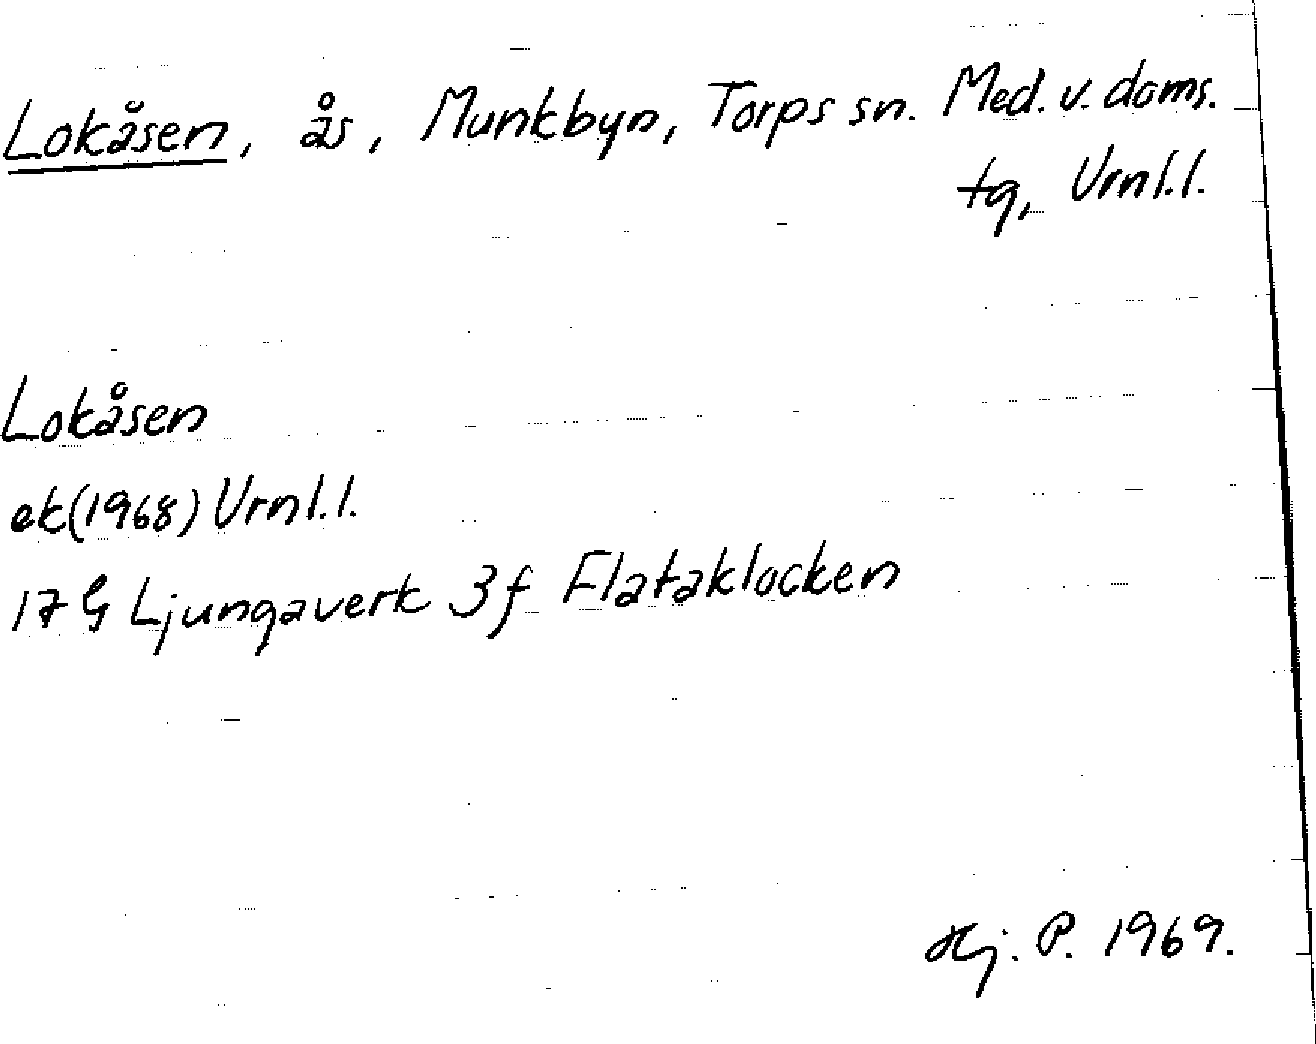 Lokåsen, ås, Munkbyn, Torps sn. Med. v. doms.
tg, Vrnl.l.
Lokåsen
ek(1968) Vrnl.l.
17 G Ljungaverk 3f Flataklocken
Hj. P. 1969.